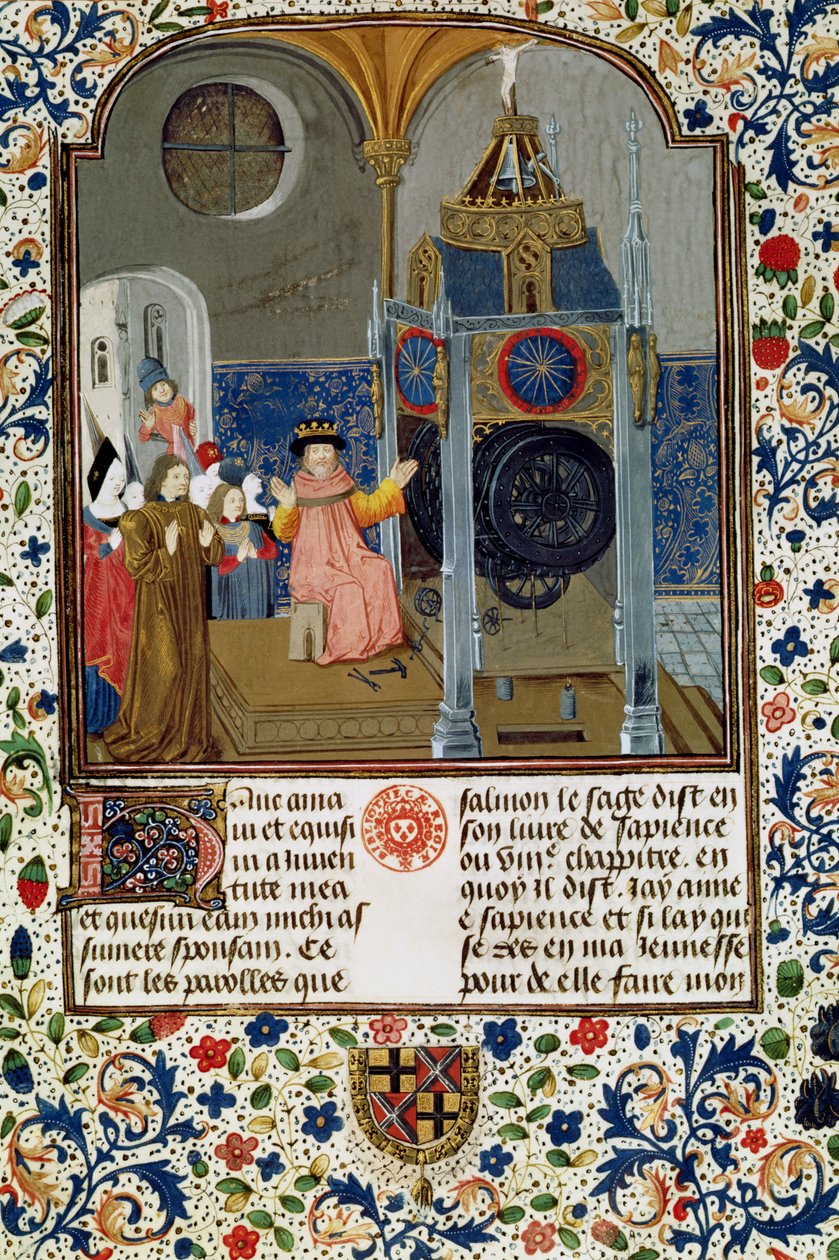 Hanc ama
ui et equisi
ui a iuuen
tute mea
et quesiui eam michi as
sumere sponsam. Ce
sont les parolles que
BIBLIOTHECÆ REGIÆ
salmon le sage dist en
son liure de sapience
ou viiie chappitre. en
quoy il dist. Jay amne
e sapience et si lay qui
se des en ma Jeunesse
pour de elle faire mon